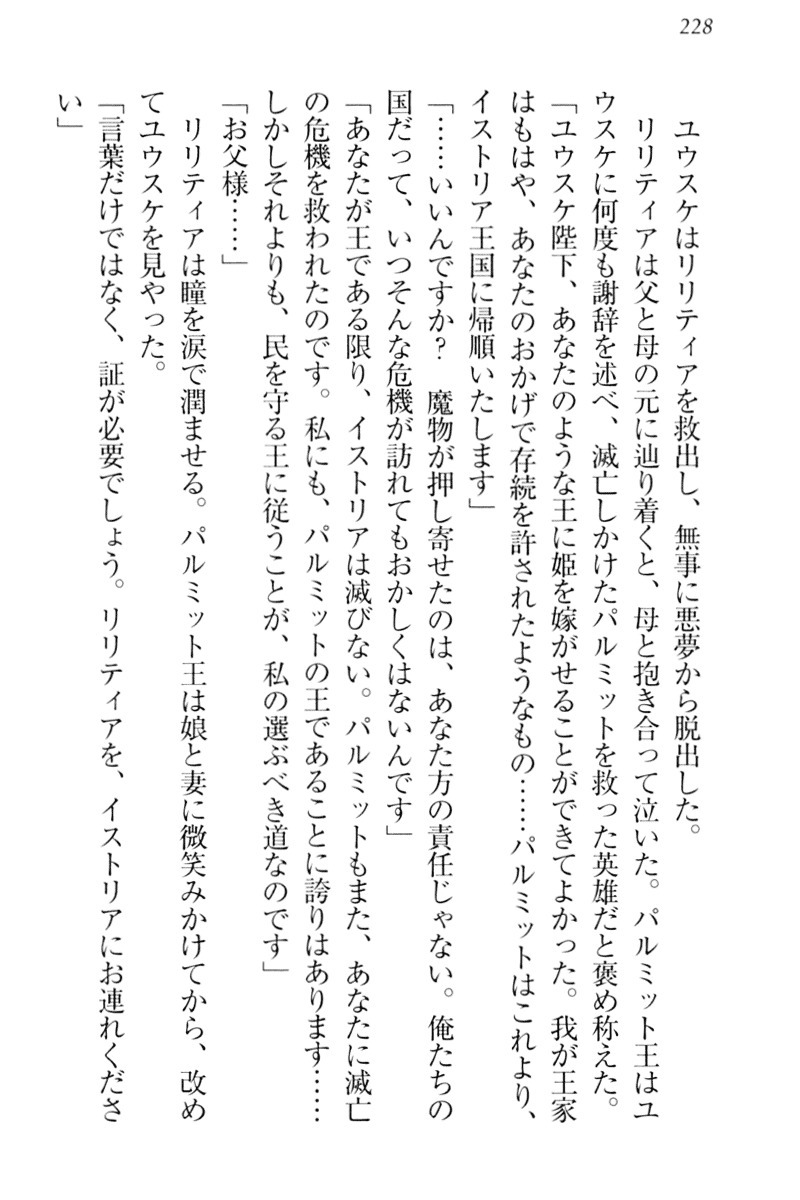 228
　ユウスケはリリティアを救出し、無事に悪夢から脱出した。
　リリティアは父と母の元に辿り着くと、母と抱き合って泣いた。パルミット王はユ
ウスケに何度も謝辞を述べ、滅亡しかけたパルミットを救った英雄だと褒め称えた。
「ユウスケ陛下、あなたのような王に姫を嫁がせることができてよかった。我が王家
はもはや、あなたのおかげで存続を許されたようなもの……パルミットはこれより、
イストリア王国に帰順いたします」
「……いいんですか？　魔物が押し寄せたのは、あなた方の責任じゃない。俺たちの
国だって、いつそんな危機が訪れてもおかしくはないんです」
「あなたが王である限り、イストリアは滅びない。パルミットもまた、あなたに滅亡
の危機を救われたのです。私にも、パルミットの王であることに誇りはあります……
しかしそれよりも、民を守る王に従うことが、私の選ぶべき道なのです」
「お父様……」
　リリティアは瞳を涙で潤ませる。パルミット王は娘と妻に微笑みかけてから、改め
てユウスケを見やった。
「言葉だけではなく、証が必要でしょう。リリティアを、イストリアにお連れくださ
い」